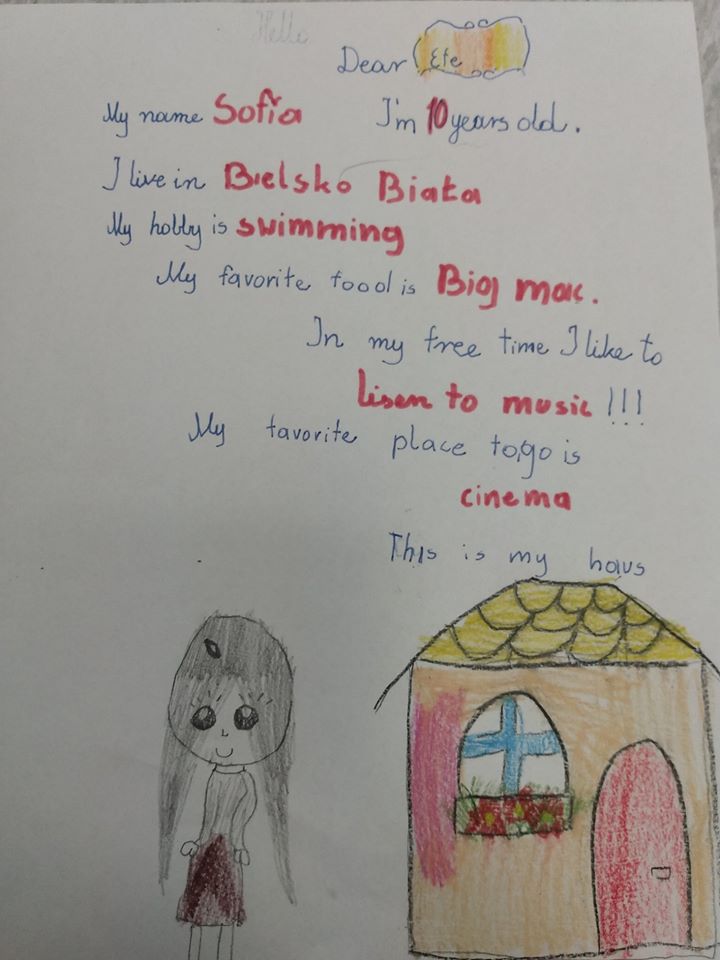 Hello
Dear Efe
My name Sofia I'm 10 years old.
I live in Bielsko Biała
My hobby is swimming
My favorite food is Big mac.
In my free time I like to
lisen to music !!!
My favorite place to go is
cinema
This is my haus